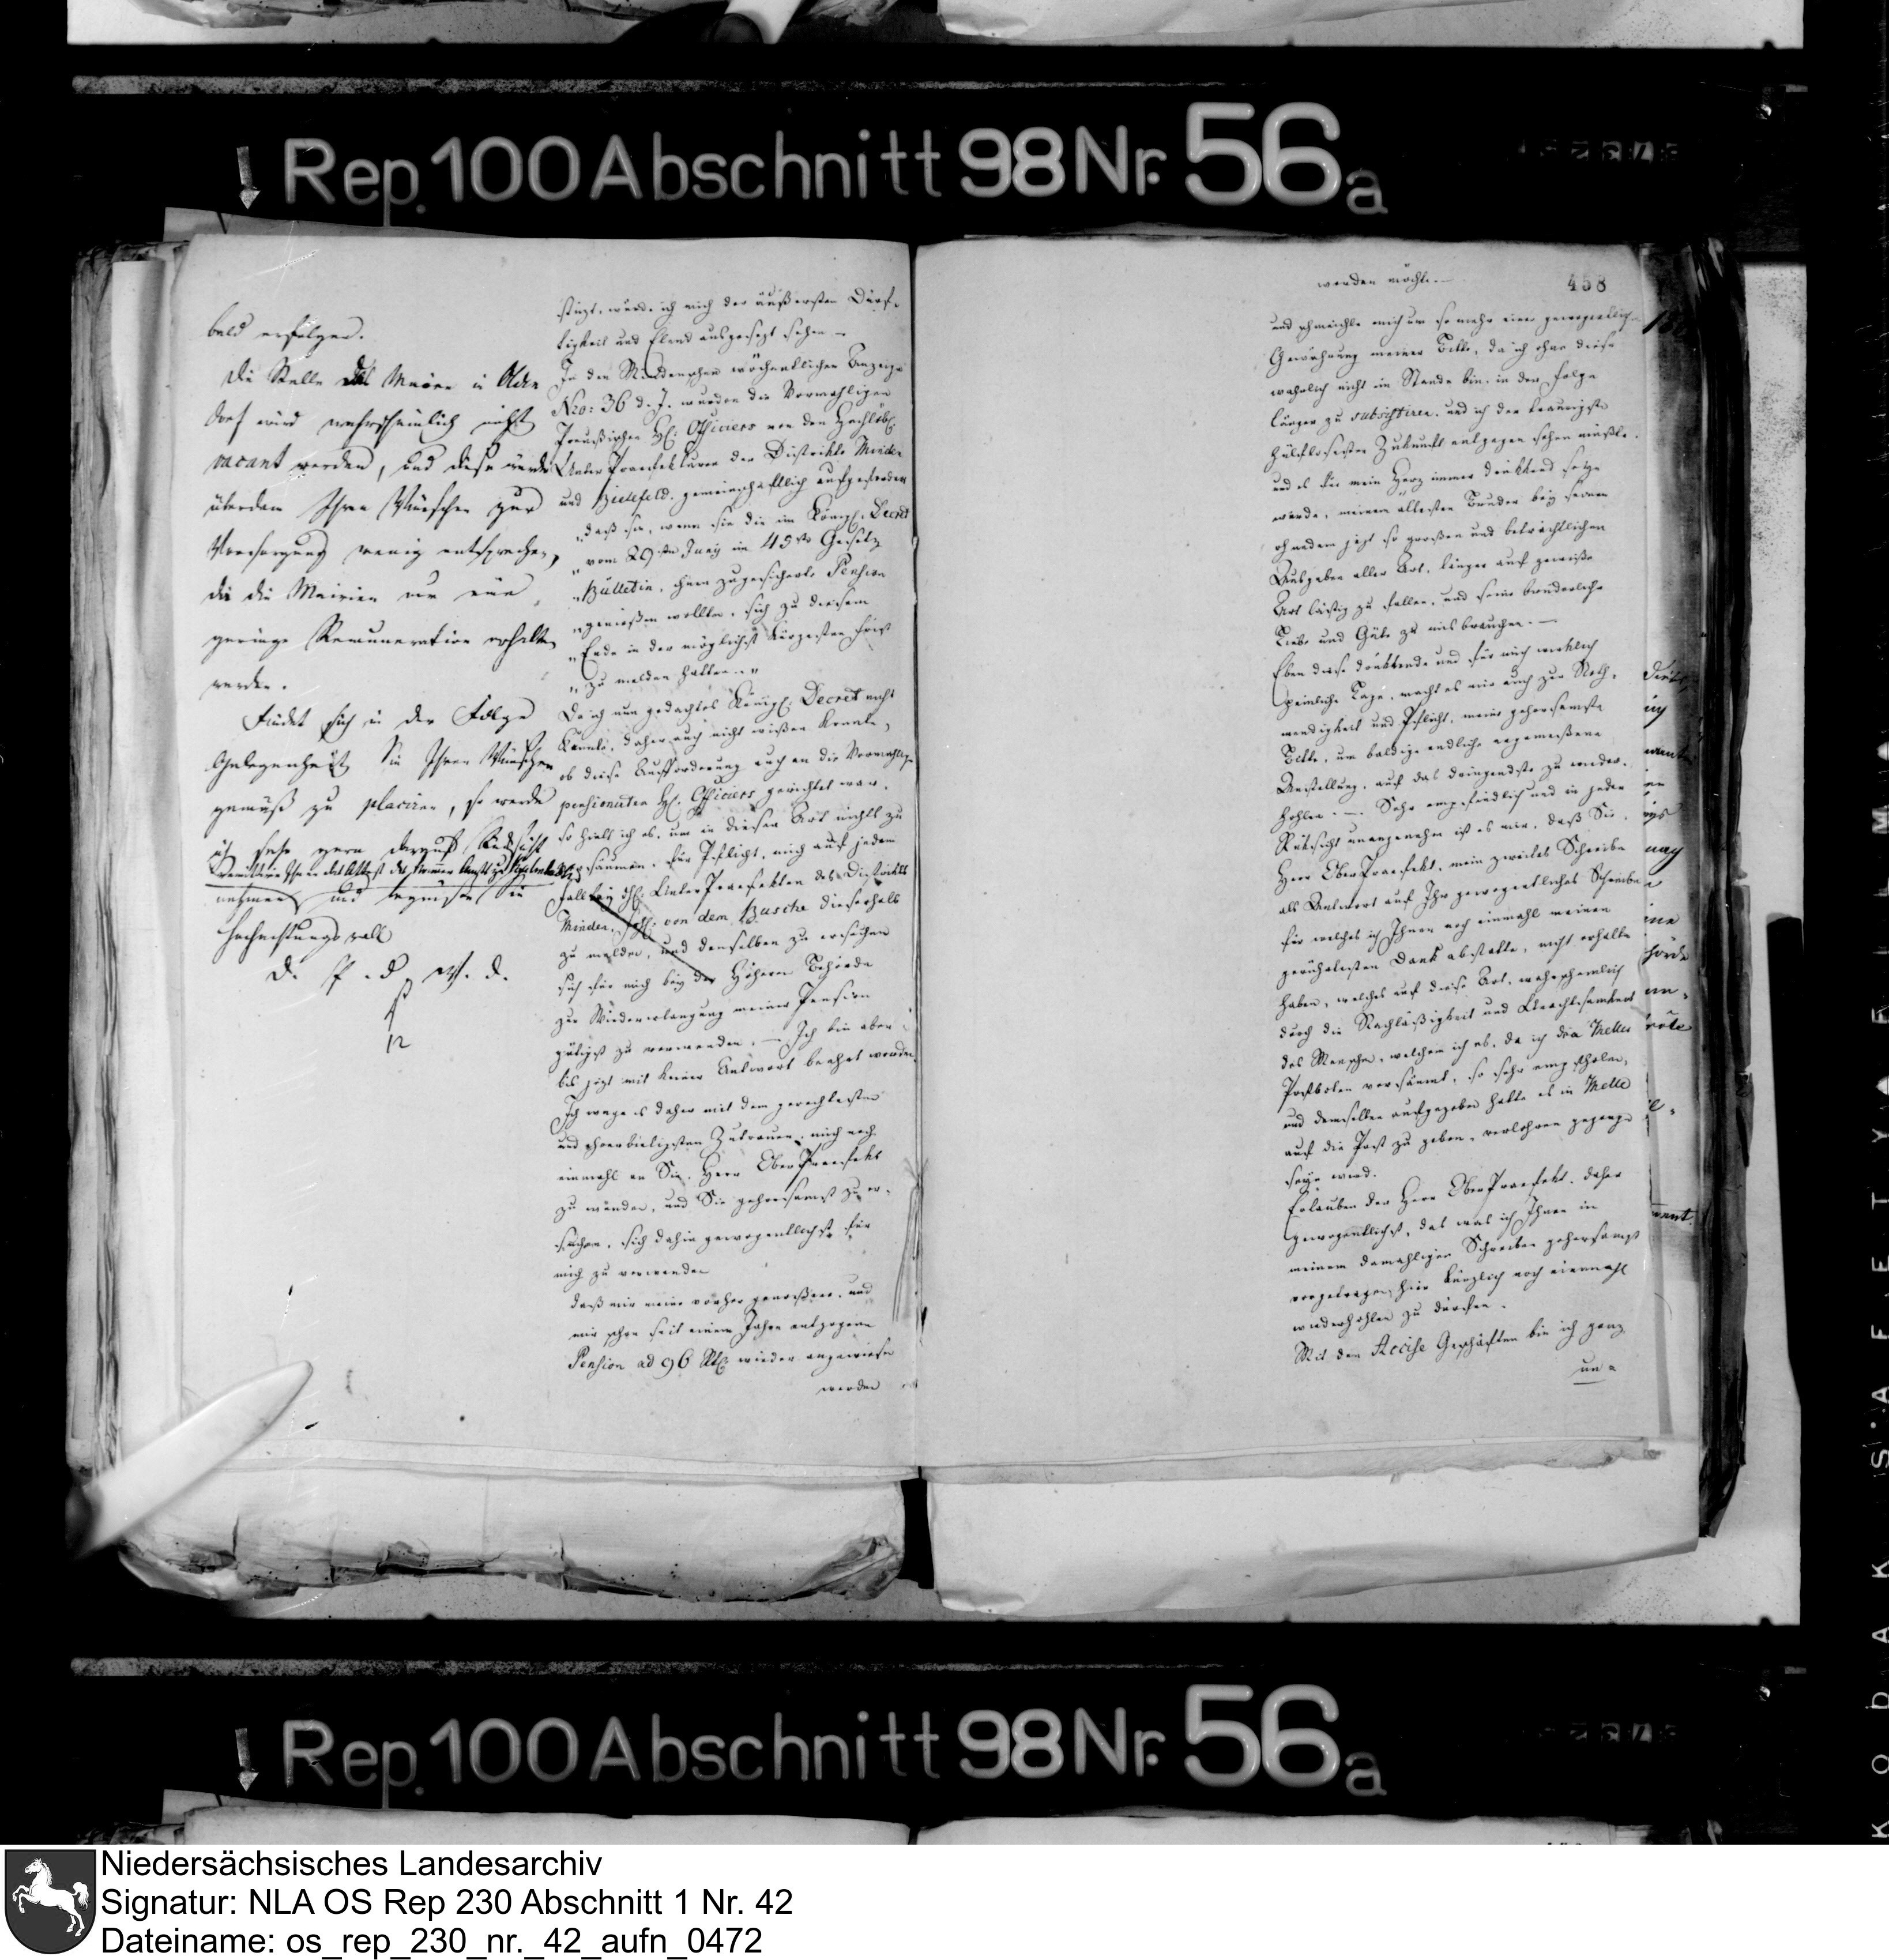 Rep. 100 Abschnitt 98 Nr. 56a
bald erfolgen.
Die Stelle des Maires in Olden
dorf wird wahrscheinlich nicht
vacant werden, und diese würde
überdem Ihren Wünschen zur
Versorgung wenig entsprechen,
da die Mairien nur eine
geringe Remuneration erhalten
werden.
Findet sich in der Folge
Gelegenheit Sie Ihren Wünschen
gemäß zu placiren, so werde
ich sehr gern darauf Rücksicht
nehmen und
Hochachtungsvoll
D. P. d. W. D.
12
stürzt, würde ich mich der äußersten Dürf-
tigkeit und Elend ausgesezt sehen —
In den Mindenschen wöchentlichen Anzeigen
Nro: 36 d. J. wurden die Vormahligen
Preußischen H. Officiers von den Hochlöbl.
Unter Praefekturen der Districkte Minden
und Bielefeld gemeinschaftlich aufgefordert
„daß sie, wenn sie die im Königl. Decret
„vom 29sten Juny im 45ten Gesetz
„Bülletin, ihnen zugesicherte Pension
„genießen wollten, sich zu diesem
„Ende in der möglichst kürzesten Frist
„zu melden hätten."
Da ich nun gedachtes Königl. Decret nicht
kannte, daher auch nicht wißen konnte,
ob diese Aufforderung auch an die Vormahls
pensionirten H. Officiers gerichtet war,
so hielt ich es, um in dieser Art nichts zu
versäumen, für Pflicht, mich auf jedem
Fall bey H. Unter Praefekten des Districkts
Minden, H. von dem Busche dieserhalb
zu melden, und denselben zu ersuchen
sich für mich bey der Höhern Behörde
zur Wiedererlangung meiner Pension
gütigst zu verwenden. — Ich bin aber
bis jezt mit keiner Antwort beehrt worden.
Ich wage es daher mit dem gerechtesten
und ehrerbietigsten Zutrauen, mich noch
einmahl an Sie, Herr Ober Praefekt
zu wenden, und Sie gehorsamst zu er-
suchen, sich dahin gewogentlichst für
mich zu verwenden
daß mir meine vorher genoßene, und
mir schon seit einem Jahre entzogene
Pension ad 96 Rtl. wieder angewiesen
werden
458
werden möchte. —
und schmeichle mich um so mehr einer gewogentlichen
Gewährung meiner Bitte, da ich ohne diese
wahrlich nicht im Stande bin, in der Folge
länger zu subsistiren, und ich der traurigsten
hülflosesten Zukunft entgegen sehen müßte.
und es für mein Herz immer drükkend seyn
würde, meinem ältesten Bruder bey seinen
ohnedem jezt so großen und beträchtlichen
Ausgaben aller Art, länger auf gewiße
Art lästig zu fallen, und seine brüderliche
Liebe und Güte zu misbrauchen. —
Eben diese drükkende und für mich wirklich
peinliche Lage, macht es mir auch zur Noth-
wendigkeit und Pflicht, meine gehorsamste
Bitte, um baldige endliche angemeßene
Anstellung, auf das dringendste zu wieder-
hohlen. — Sehr empfindlich und in jeder
Rüksicht unangenehm ist es mir, daß Sie,
Herr Ober Praefekt, mein zweites Schreiben
als Antwort auf Ihr gewogentliches Schreiben
für welches ich Ihnen noch einmahl meinen
gerührtesten Dank abstatte, nicht erhalten
haben, welches auf diese Art, wahrscheinlich
durch die Nachläßigkeit und Unachtsamkeit
des Menschen, welchem ich es, da ich den Meller
Postboten versäumt, so sehr empfohlen,
und demselben aufgegeben hatte es in Melle
auf die Post zu geben, verlohren gegangen
seyn wird.
Erlauben der Herr Ober Praefekt, daher
gewogentlichst, das was ich Ihnen in
meinem damahligen Schreiben gehorsamst
vorgetragen, hier kürzlich noch einmahl
wiederhohlen zu dürfen.
Mit den Accise Geschäften bin ich ganz
un-
Rep. 100 Abschnitt 98 Nr. 56a
KODAK SAFETY FILM
Niedersächsisches Landesarchiv
Signatur: NLA OS Rep 230 Abschnitt 1 Nr. 42
Dateiname: os_rep_230_nr._42_aufn_0472